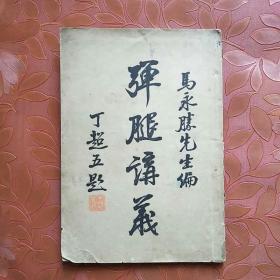 馬永勝先生編
彈腿講義
丁超五題